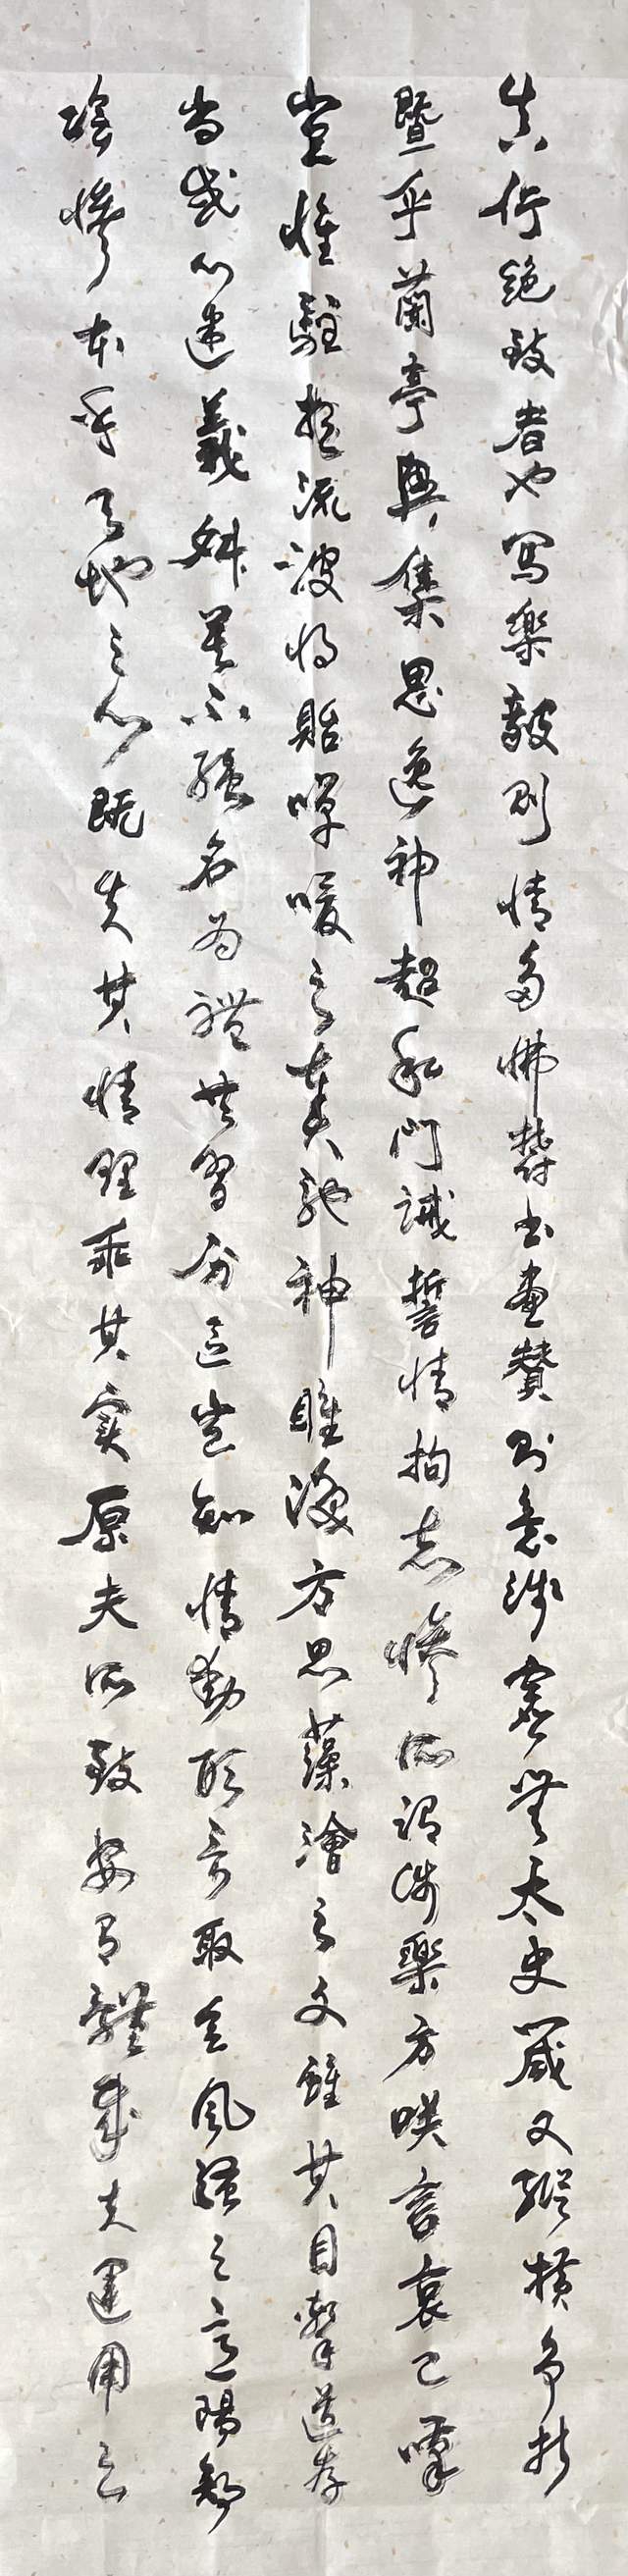 真行絶致者也寫樂毅則情多怫欝書畫贊則意涉瓌竒太史箴又縱橫争折
暨乎蘭亭興集思逸神超私門誡誓情拘志慘所謂涉樂方咲言哀已嘆
豈惟駐想流波將貽嘽噯之奏馳神睢渙方思藻繪之文雖其目擊道存
尚或心迷義舛莫不強名為體共習分區豈知情動形言取會風騷之意陽舒
陰慘本乎天地之心既失其情理乖其實原夫所致安有體哉夫運用之